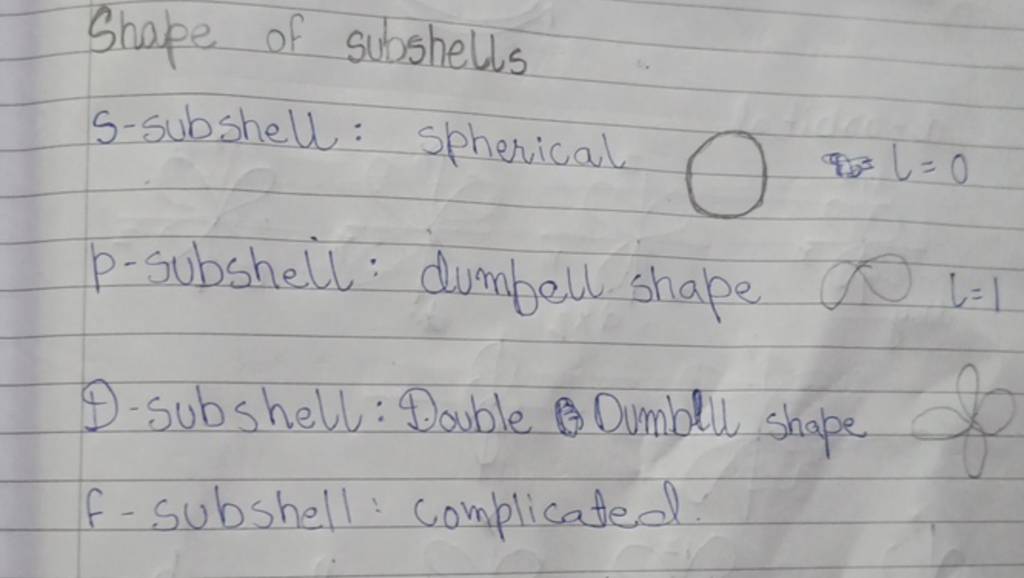 Shape of subshells
s-subshell: spherical l=0
p-subshell: dumbell shape l=1
D-subshell: Double Dumbell shape
f-subshell: complicated.